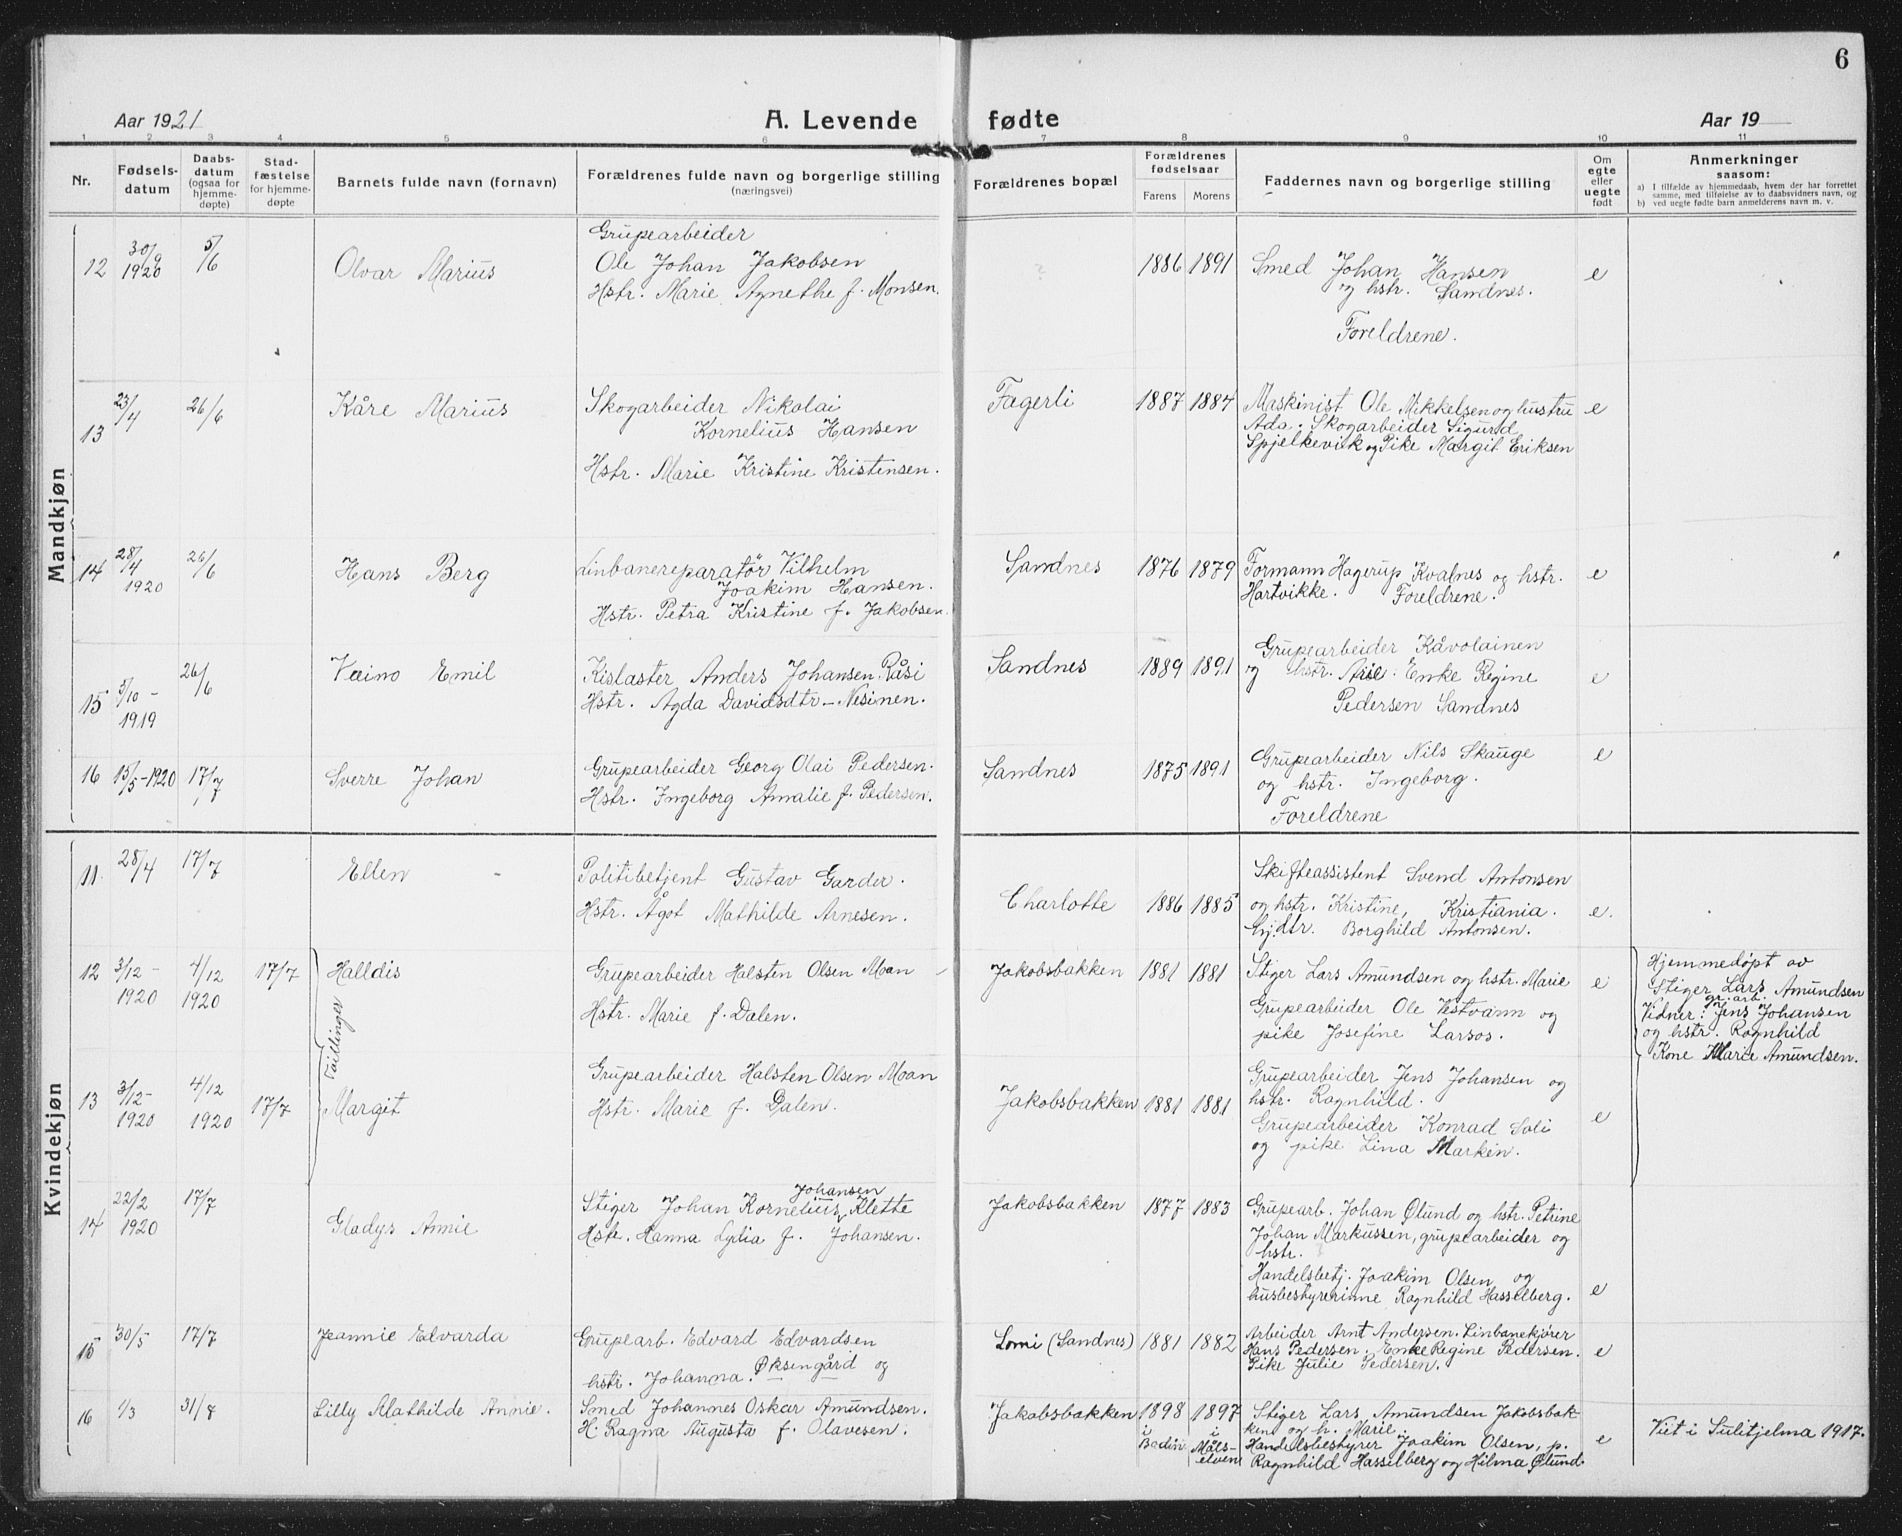 6
Aar 1921
A. Levende fødte
Aar 19
1 2 3 4 5 6 7 8 9 10 11
Nr.
Fødselsdatum
Daabsdatum (ogsaa for hjemmedøpte)
Stadfæstelse for hjemmedøpte
Barnets fulde navn (fornavn)
Forældrenes fulde navn og borgerlige stilling (næringsvei)
Forældrenes bopæl
Forældrenes fødselsaar
Farens Morens
Faddernes navn og borgerlige stilling
Om egte eller uegte født
Anmerkninger saasom:
a) I tilfælde av hjemmedaab, hvem der har forrettet samme, med tilføielse av to daabsvidners navn, og
b) ved uegte fødte barn anmelderens navn m. v.
Mandkjøn
12 30/9 1920 5/6 Olvar Marius
Grupearbeider
Ole Johan Jakobsen
Hstr. Marie Agnethe f. Monsen.
1886 1891
Smed Johan Hansen
og hstr. Sandnes.
Foreldrene.
e
13 23/4 26/6 Kåre Marius
Skogarbeider Nikolai
Kornelius Hansen
Hstr. Marie Kristine Kristensen.
Fagerli 1887 1884
Maskinist Ole Mikkelsen og hustru
Ada. Skogarbeider Sigurd
Spjelkevik og Pike Margit Eriksen
e
14 28/4 1920 26/6 Hans Berg
Linbanereparatør Vilhelm
Joakim Hansen.
Hstr. Petra Kristine f. Jakobsen.
Sandnes 1876 1879
Formann Hagerup Kvalnes og hstr.
Hartvikke. Foreldrene.
e
15 5/10 - 1919 26/6 Veino Emil
Kislaster Anders Johansen Råsi
Hstr. Agda Davidsdtr - Nesinen.
Sandnes 1889 1891
Grupearbeider Kavolainen
og hstr. Enke Regine
Pedersen Sandnes
e
16 15/5-1920 17/7 Sverre Johan
Grupearbeider Georg Olai Pedersen.
Hstr. Ingeborg Amalie f. Pedersen.
Sandnes 1875 1891
Grupearbeider Nils Skauge
og hstr. Ingeborg.
Foreldrene
e
Kvindekjøn
11. 28/4 17/7 Ellen -
Politibetjent Gustav Garder.
Hstr. Ågot Mathilde Arnesen.
Charlotte 1886 1885
Skifteassistent Svend Antonsen
og hstr. Kristine, Kristiania.
dtr. Borghild Antonsen.
e.
12 3/12 - 1920 4/12 1920 17/7 Halldis
Tvillinger
Grupearbeider Halsten Olsen Moan
Hstr. Marie f. Dalen.
Jakobsbakken 1881 1881
Stiger Lars Amundsen og hstr. Marie
Grupearbeider Ole Vestvann og
pike Josefine Larsos.
e
Hjemmedøpt av
Stiger Lars Amundsen
gr. arb.
Vidner: Jens Johansen
og hstr. Ragnhild
Kone Marie Amundsen.
13 3/12- 1920 4/12 1920 17/7 Margit
Grupearbeider Halsten Olsen Moan
Hstr. Marie f. Dalen.
Jakobsbakken 1881 1881
Grupearbeider Jens Johansen og
hstr. Ragnhild.
Grupearbeider Konrad Soli
og pike Lina Markén.
e
14 22/2 1920 17/7 Gladys Annie
Johansen
Stiger Johan Kornelius Klette
Hstr. Hanna Lydia f. Johansen.
Jakobsbakken 1877 1883
Grupearb. Johan Ølund og hstr. Petrine
Johan Markussen, grupearbeider og
hstr.
Handelsbetj. Joakim Olsen og
husbestyrerinne Ragnhild Hasselberg.
e
15 30/5 17/7 Jeannie Edvarda
Grupearb. Edvard Edvardsen
Øksengård og
hstr. Johanna.
Lomi (Sandnes) 1881 1882
Arbeider Arnt Andersen. Linbanekjører
Hans Pedersen. Enke Regine Pedersen.
Pike Julie Pedersen.
e
16 1/3 31/8 Lilly Mathilde Annie.
Smed Johannes Oskar Amundsen.
H. Ragna Augusta f. Olavesen.
Jakobsbakken 1898 i Bodin 1897 i Målselven
Stiger Lars Amundsen Jakobsbakken og h. Marie.
Handelsbestyrer Joakim Olsen, p.
Ragnhild Hasselberg og Hilma Ølund.
e
Viet i Sulitjelma 1917.